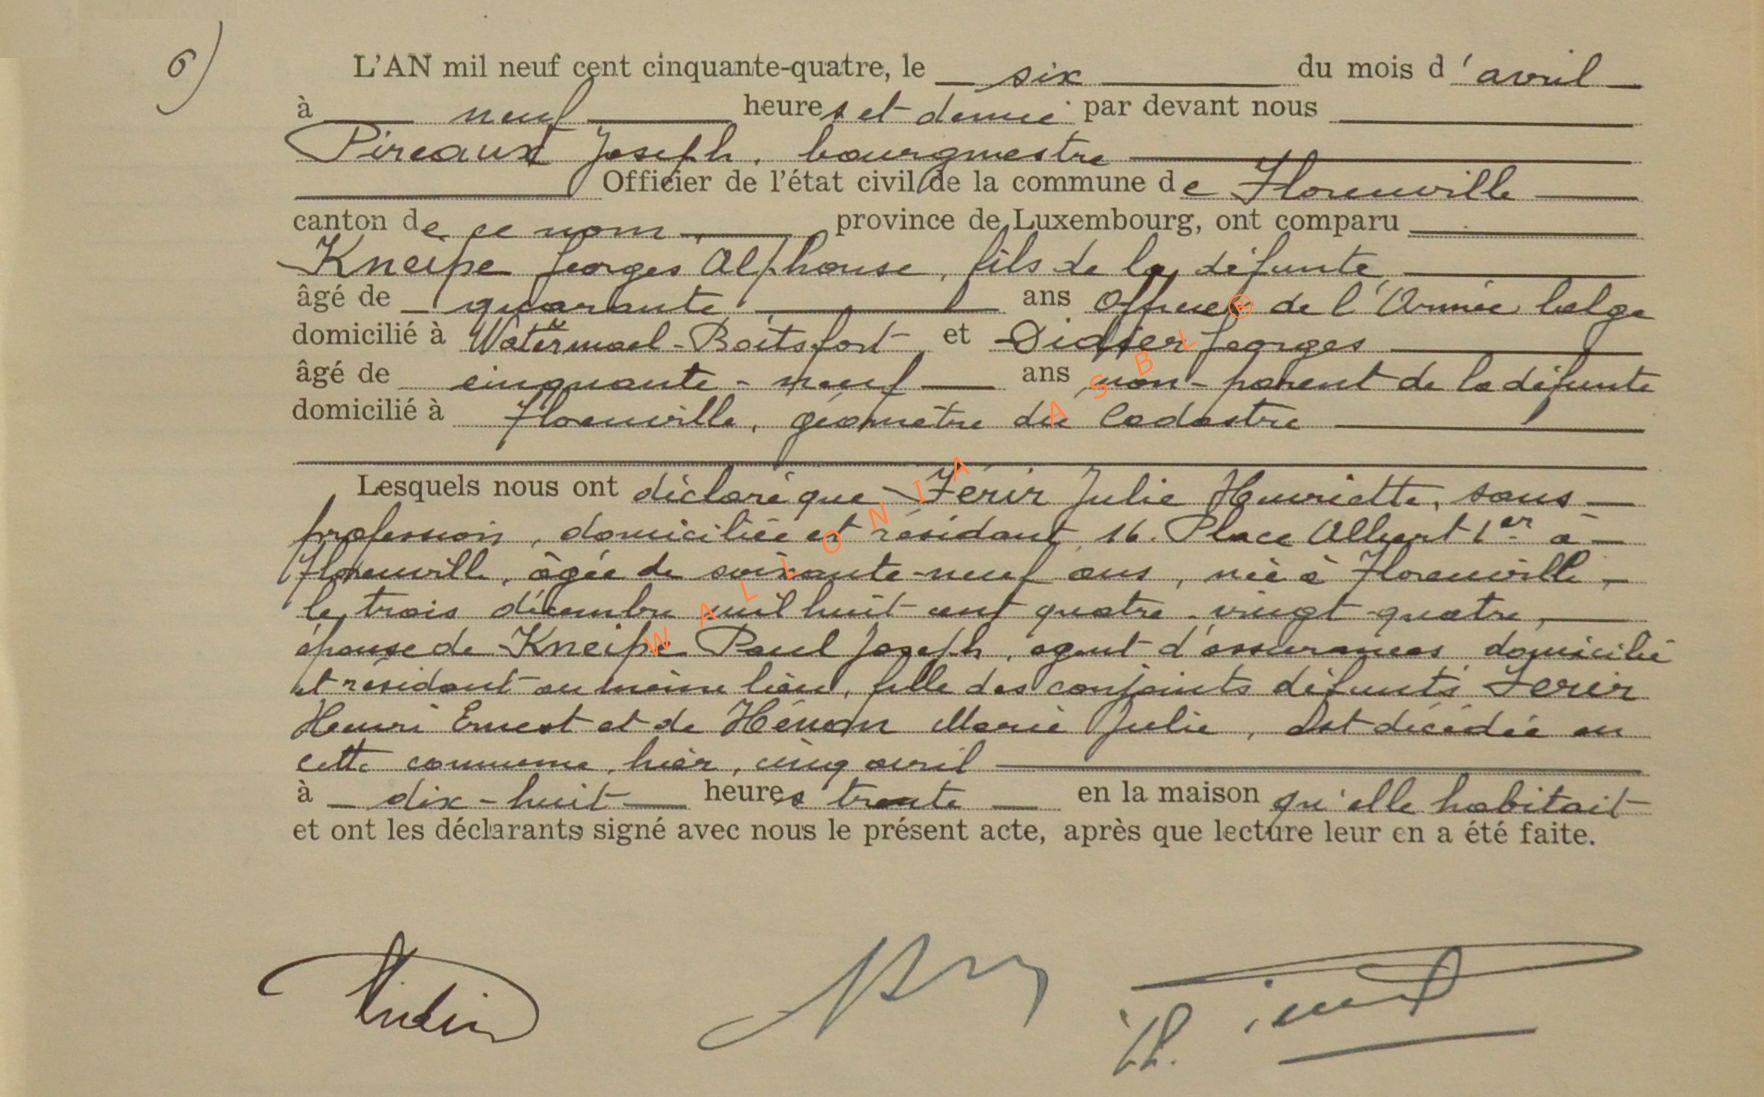 6)
L'AN mil neuf cent cinquante-quatre, le six du mois d'avril
à neuf heures et demie par devant nous
Pireaux Joseph, bourgmestre
Officier de l'état civil de la commune de Florenville
canton de ce nom, province de Luxembourg, ont comparu
Kneipe Georges Alphonse, fils de la défunte
âgé de quarante ans Officier de l'Armée belge
domicilié à Watermael-Boitsfort et Didier Georges
âgé de cinquante-neuf ans non-parent de la défunte
domicilié à Florenville, géomètre du Cadastre
Lesquels nous ont déclaré que Férir Julie Henriette, sans
profession, domiciliée et résidant 16. Place Albert 1er à
Florenville, âgée de soixante-neuf ans, née à Florenville,
le trois décembre mil huit cent quatre-vingt-quatre,
épouse de Kneipe Paul Joseph, agent d'assurances, domicilié
et résidant au même lieu, fille des conjoints défunts Ferir
Henri Ernest et de Hénon Marie Julie, est décédée en
cette commune, hier, cinq avril
à dix-huit heures trente en la maison qu'elle habitait
et ont les déclarants signé avec nous le présent acte, après que lecture leur en a été faite.
WALLONIA ASBL ®